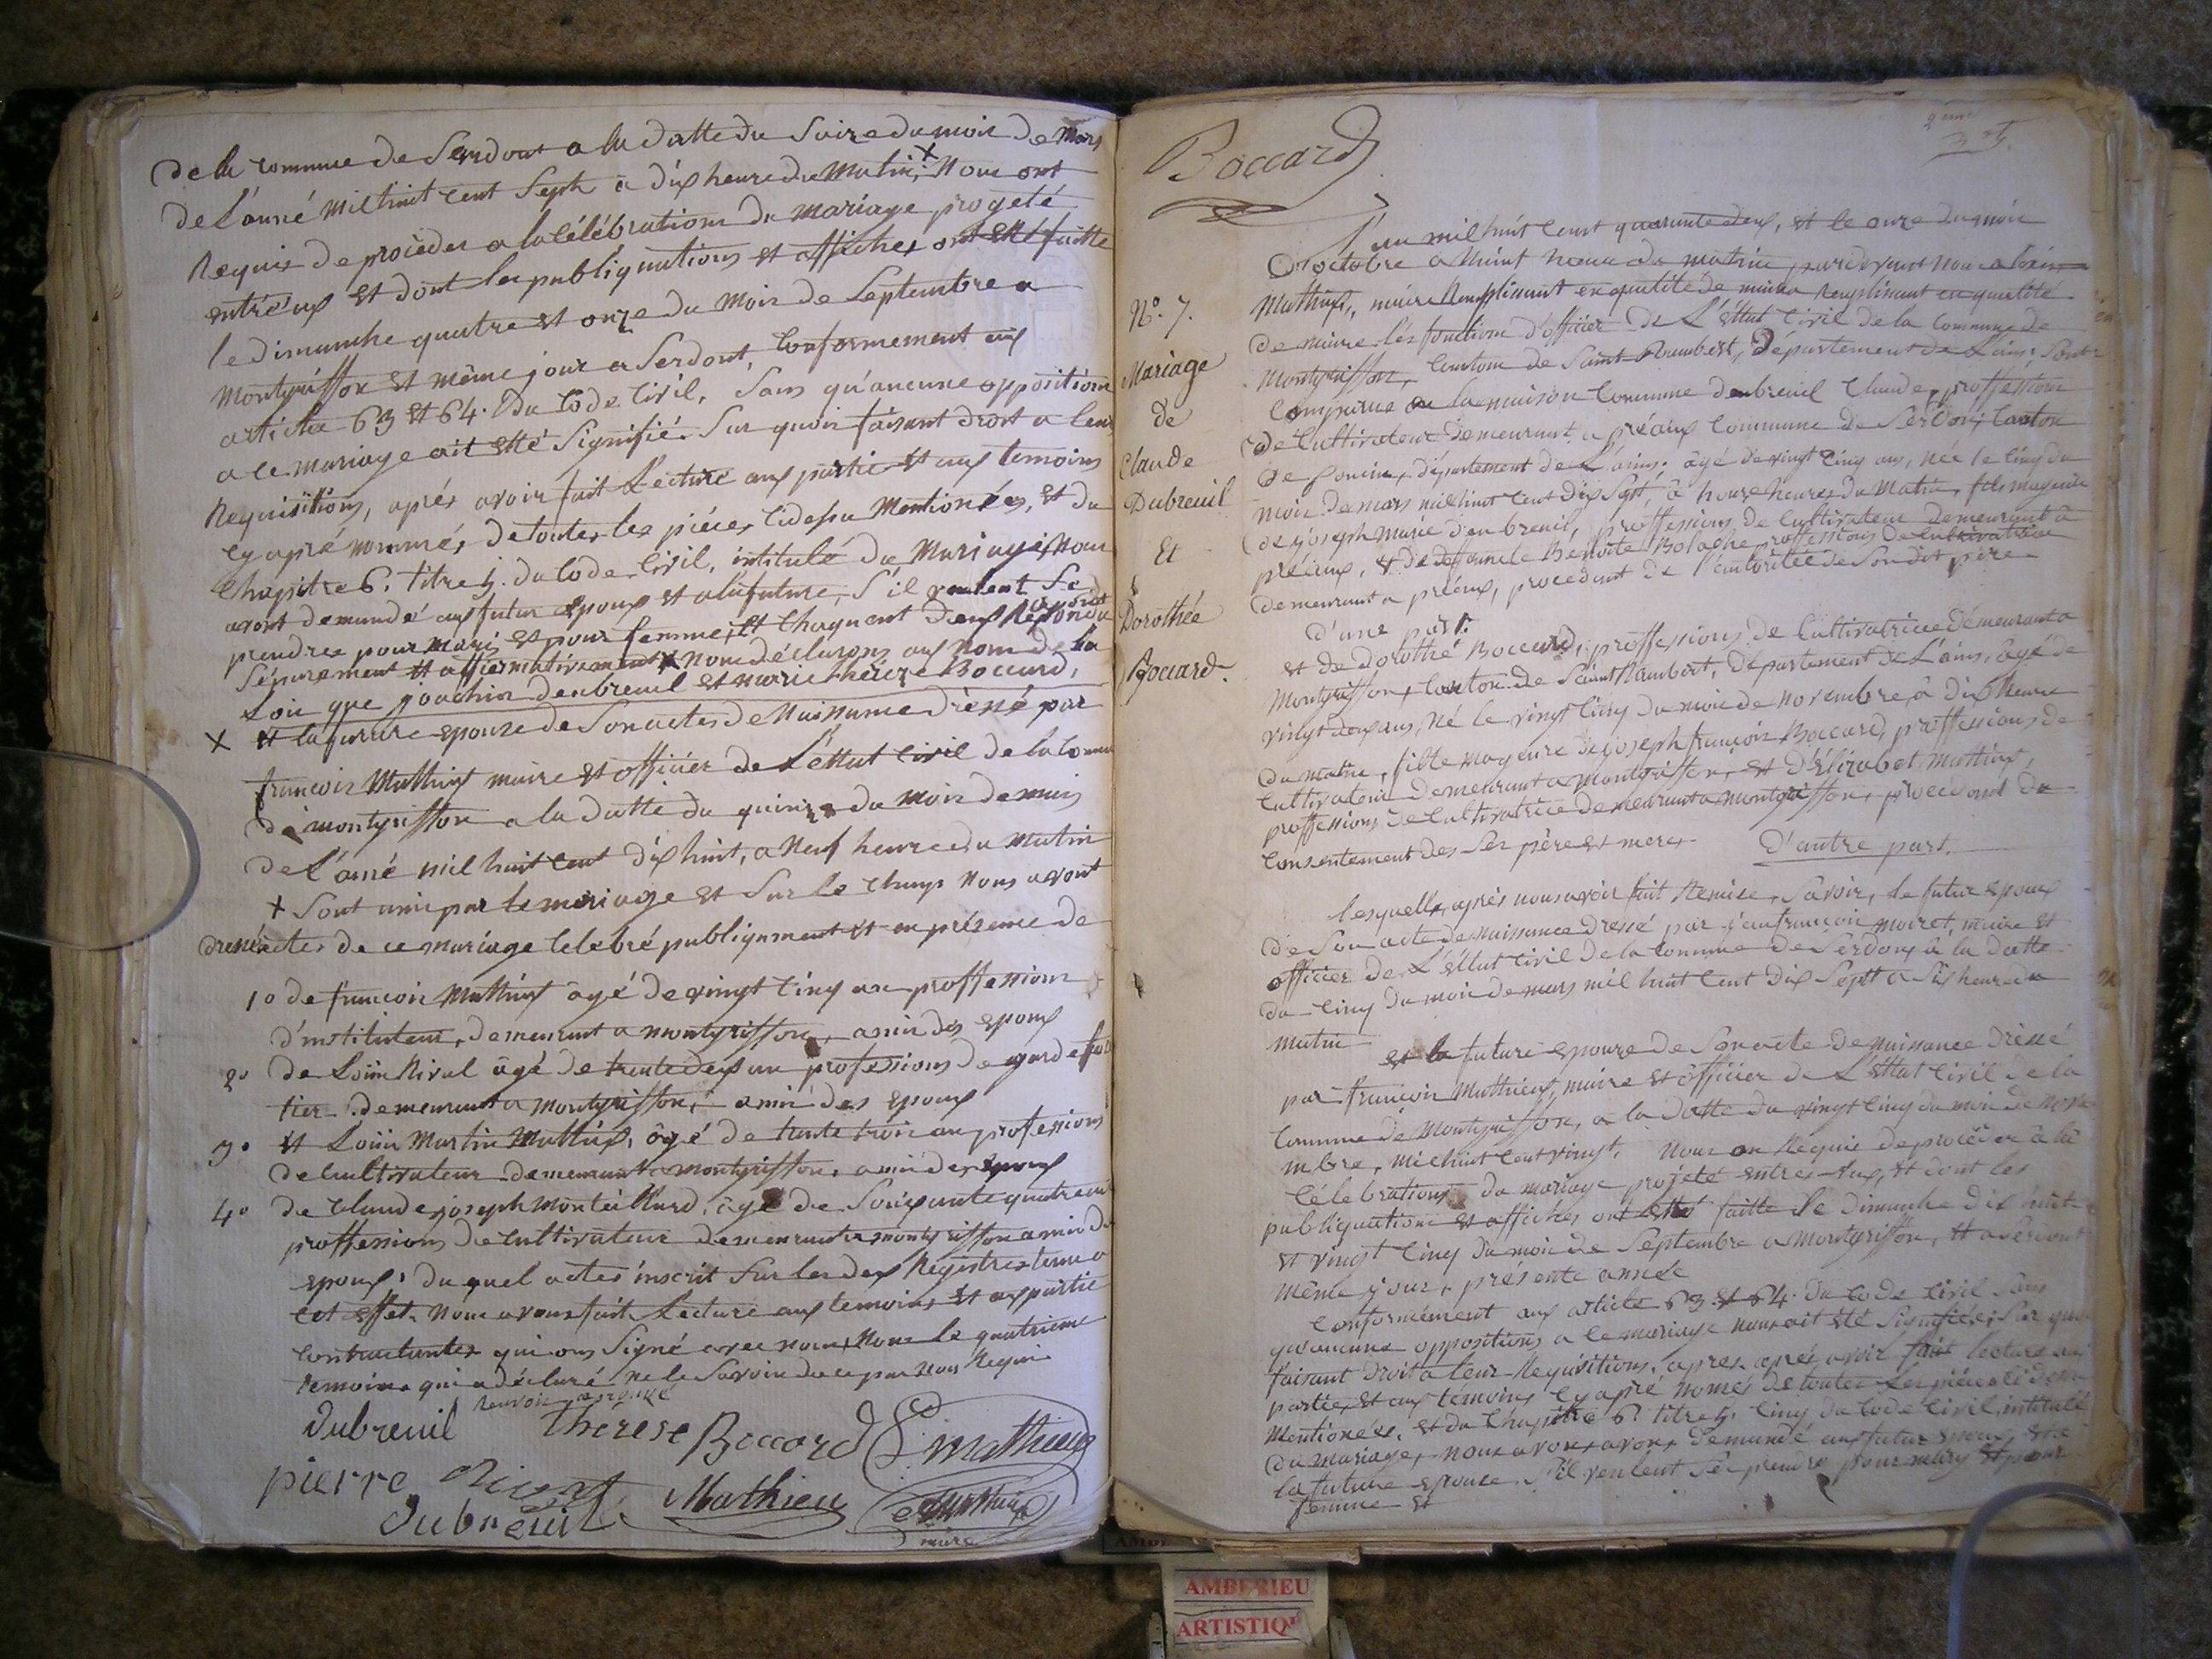 De la Commune de Serdont a la datte du Seize du mois de Mars
De L'anné mil huit Cent Sept à dix heure du Matin, X Nous ont
Requis de procéder a la Célébrations du mariage projeté
entréux et dont les publiquations et affiches ont etté faitte
le dimanche quatre et onze du Mois de Septembre a
Montgriffon et même jour a Serdont, Conformement aux
articles 63 et 64. du Code Civil, Sans qu'aucune oppositions
a ce mariage ait etté Signifié. Sur quoi faisant droit a leur
Requisitions, aprés avoir fait Lecture aux partie et aux temoins
cy apré nommés de toutes les piéces cidessu Mentionées, et du
Chapitre 6. titre 5. du Code Civil, intitulé du Mariage, Nous
avont demandé aux futur epoux et a la future, S'il veulent Se
prendre pour maris et pour femme, et Chaquent d'eux ayont Repondu
Séparement et affirmativement X Nous déclarons aux Nom de la
Loix que joachin deubreuil et marie théréze Boccard,
X et la future epouze de Son actes de Naissance dréssé par
francois Mathieux maire et officier de L'éttat Civil de la Commu
de montgriffon a la datte du quinze du mois de mais
de L'anné mil huit Cent dix huit, a Neuf heure du matin
X Sont unis par le mariage et Sur le Champs Nous avont
dressé actes de ce mariage Celebré publiquement et en présence de
1º de francois Mathieux âgé de vingt Cinq an proffessions
d'instituteur, demeurant a montgriffon, amis des epoux
2º de Louis Rival âgé de trente deux an professions de garde fores
tier demeurant a montgriffon, amis des epoux
3º et Louis Martin Mathieux, âgé de trente trois an professions
de Cultivateur demeurant a montgriffon, amis des epoux
4º de Claude joseph Montaillard, âgé de Soixante quatre an
proffessions de Cultivateur demeurant a montgriffon amis des
epoux, du quel actes inscrit Sur les deux Registres tenu a
Cet effet. Nous avons fait Lecture aux temoins et aux partie
Contractantes qui ons Signé avec nous, Nous le quatrieme
temoins qui a déclaré ne le Savoir de ce par Nous Requis
Renvois aprouvé
Dubreuil Therese Boccard Mathieux
pierre
Dubreuil Mathieu Mathieux
maire
Boccard
Nº. 7.
Mariage
de
Claude
Dubreuil
Et
Dorothée
Boccard.
L'an mil huit Cent quarante deux, et le onze du mois
D'octobre a huint heure du matin, pardevant nous
Mathieux, maire Remplissant en qualité de maire Remplissant en qualité
de maire les fonctions d'officier de L'éttat Civil de la Commune de
Montgriffon, Canton de Saint Rambert, département de L'ains, Sont
Comparus en la maison Commune deubreuil Claude, proffessions
de Cultivateur demeurant a préaux Commune de Serdon, Canton
de poncin, département de L'ains, âgé de vingt Cinq ans, née le Cinq du
mois de mars mil huit Cent dix Sept, à honze heures du Matin, fils mageure
de joseph Marie deubreuil, proffessions de Cultivateur demeurant à
préaux, et de defunte Benoite Bolache proffessions de Cultivatrice
demeurant a préaux, procedant de l'autoritée de Son dit père
D'une part.
et de dorothé Boccard, proffessions de Cultivatrice démeurant a
Montgriffon, Canton de Saint Rambert, département de L'ains, âgé de
vingt deux ans, Né le vingt Cinq du mois de novembre, à dix heure
du matin, fille mageure de joseph francois Boccard, proffessions de
Cultivateur demeurant a montgriffon, et d'Élizabet Mathieux,
proffessions de Cultivatrice demeurant a Montgriffon, procédant du
Consentement des Ses père et mere. D'autre part.
lesquelle, aprés nous avoir fait Remise, Savoir, le futur epoux
de Son acte de naissance dressé par j'ean francois moiret, maire et
officier de L'éttat Civil de la Commune de Serdons à la datte
du Cinq du mois de mars mil huit Cent dix Septt a Six heure du
matin
et la future epouze de Son acte de naissance dressé
par francois Mathieux, maire et officier de L'éttat Civil de la
Commune de Montgriffon, a la datte du vingt Cinq du moi de Nove
mbre, mil huit Cent vingt, Nous on Requis de procéder à la
Célebrations du mariage projeté entres eux, et dont les
publiquations et affiches ont etté faitte le dimanche dix huit
et vingt Cinq du mois de Septembre a Montgriffon, et a Serdont
même jour, présente année
Conformément aux article 63. et 64. du Code Civil Sans
qu'aucune oppositions a ce mariage nous ait été Signifiée, Sur quoi
faisant droit a leur Requisitions, apres aprés avoir fait lecture aux
parties et aux témoins cy apré només de toutes les piéces cidessu
Mentionées, et du Chapitre 6. titre 5. Cinq du Code Civil intitulé
du Mariage, nous avons avons demandé aux futur epoux et a
la future epouze S'il veulent Se prendre pour mary et pour
femme et
AMBERIEU
ARTISTIQ